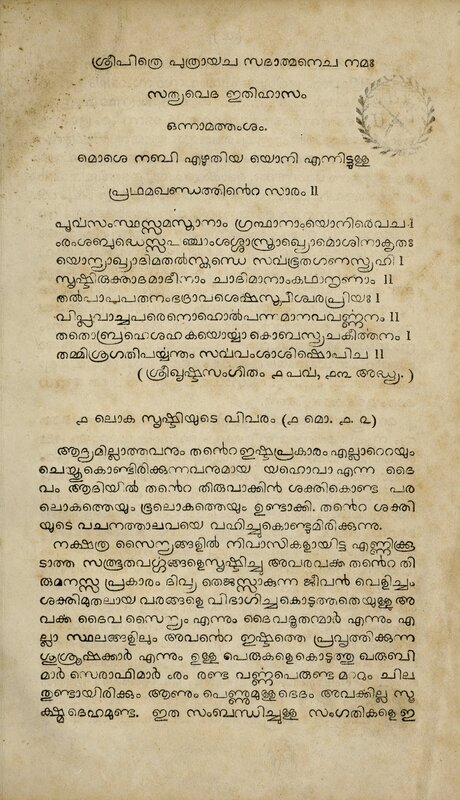 ശ്രീപിത്രെ പുത്രായച സദാത്മനെച നമഃ
സത്യവെദ ഇതിഹാസം
ഒന്നാമത്തംശം.
മൊശെ നബി എഴുതിയ യൊനി എന്നിട്ടുള്ള
പ്രഥമഖണ്ഡത്തിൻെറ സാരം ॥
പൂൎവസംസ്ഥസ്സമസ്താനാം ഗ്രന്ഥാനാംയൊനിരെവച ।
യൊന്യാഖ്യാദിമതൽസ്കന്ധെ സൎവഭൂതഗണസൃഹി ।
സൃഷ്ടിരുക്താദമാദീനാം ചാദിമാനാംകഥാനൃണാം ॥
തൽപാപപതനംഭദ്രാവശെഷസ്ത്വീശ്വരപ്രിയഃ ।
വിപ്ലവാച്ചപരെനൊഹൊൽപന്നമാനവവൎണ്ണനം ॥
തതൊബ്രഹെശഹകയൊൎയ്യാകൊബസ്യചകീൎത്തനം ।
തമ്മിശ്രഗതിപൎയ്യന്തം സൎവവംശാശിഷൊപിച ॥
(ശ്രീഖൃഷ്ടസംഗീതം ൧ പൎവ, ൧൩ അദ്ധ്യ. )
൧ ലൊക സൃഷ്ടിയുടെ വിവരം (൧ മൊ. ൧. ൨)
ആദ്യമില്ലാത്തവനും തൻെറ ഇഷ്ടപ്രകാരം എല്ലാറെറയും
ചെയ്തുകൊണ്ടിരിക്കുന്നവനുമായ യഹൊവാ എന്ന ദൈ
വം ആദിയിൽ തൻെറ തിരുവാക്കിൻ ശക്തികൊണ്ട പര
ലൊകത്തെയും ഭൂലൊകത്തെയും ഉണ്ടാക്കി. തൻെറ ശക്തി
യുടെ വചനത്താലവയെ വഹിച്ചുകൊണ്ടുമിരിക്കുന്നു.
നക്ഷത്ര സൈന്യങ്ങളിൽ നിവാസികളായിട്ട എണ്ണിക്കൂ
ടാത്ത സത്ഭൂതവൎഗ്ഗങ്ങളെസൃഷ്ടിച്ചു അവരവൎക്ക തൻെറ തി
രുമനസ്സ പ്രകാരം ദിവ്യ തെജസ്സാകുന്ന ജീവൻ വെളിച്ചം
ശക്തിമുതലായ വരങ്ങളെ വിഭാഗിച്ചകൊടുത്തതെയുള്ളു അ
വൎക്ക ദൈവ സൈന്യം എന്നും ദൈവദൂതന്മാർ എന്നും എ
ല്ലാ സ്ഥലങ്ങളിലും അവൻെറ ഇഷ്ടത്തെ പ്രവൃത്തിക്കുന്ന
ശുശ്രൂഷക്കാർ എന്നും ഉള്ള പെരുകളെകൊടുത്തു ഖരുബി
മാർ സെരാഫിമാർ ൟ രണ്ട വൎണ്ണപെരുണ്ട മാറും ചില
തുണ്ടായിരിക്കും ആണും പെണ്ണുമുള്ളഭെദം അവൎക്കില്ല സൂ
ക്ഷ്മ ദെഹമുണ്ട. ഇത സംബന്ധിച്ചുള്ള സംഗതികളെ ഇ